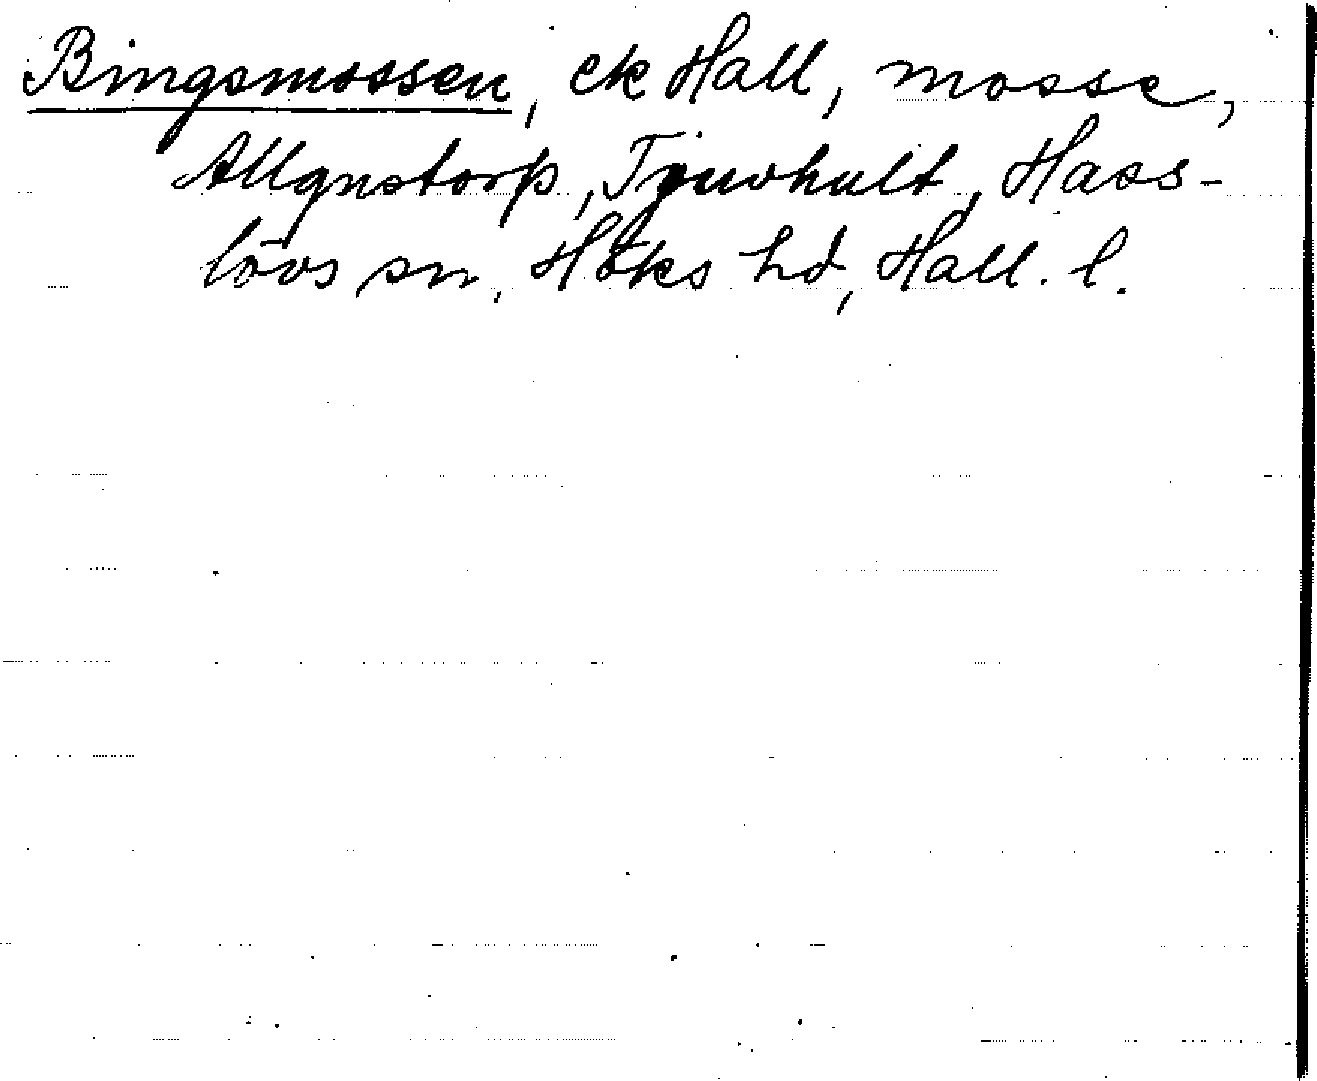 Bingsmossen, ek Hall, mosse,
Allgustorp, Tjuvhult, Hass-
lövs sn, Höks hd, Hall. l.